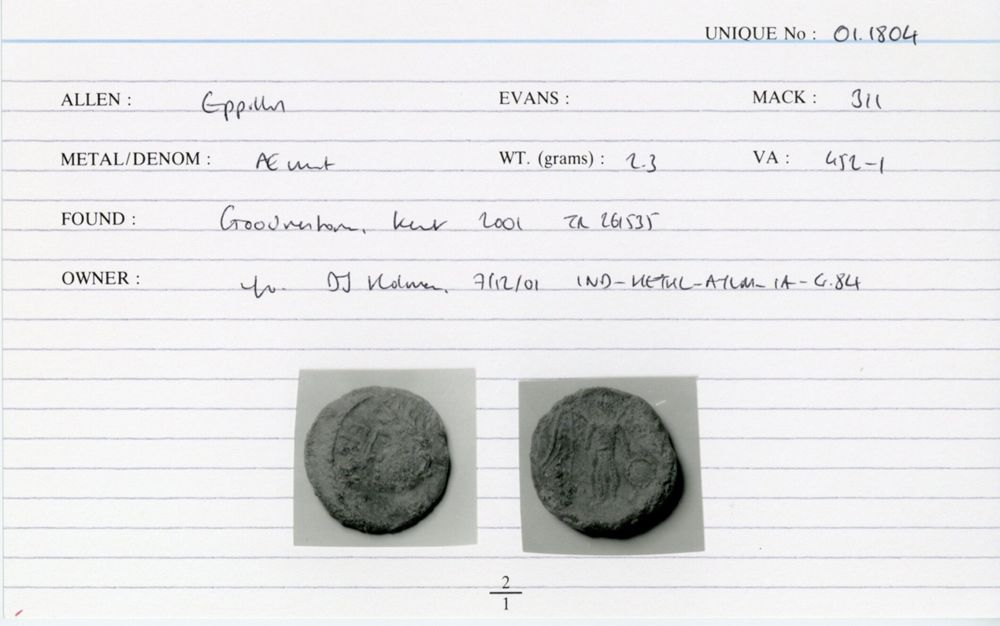 UNIQUE No : 01.1804
ALLEN : Eppillus EVANS : MACK : 311
METAL/DENOM : Æ unit WT. (grams) : 2.3 VA : 452-1
FOUND : Goodnestone, Kent 2001 TR 261535
OWNER : DJ Holman, 7/12/01 IND-
2
1